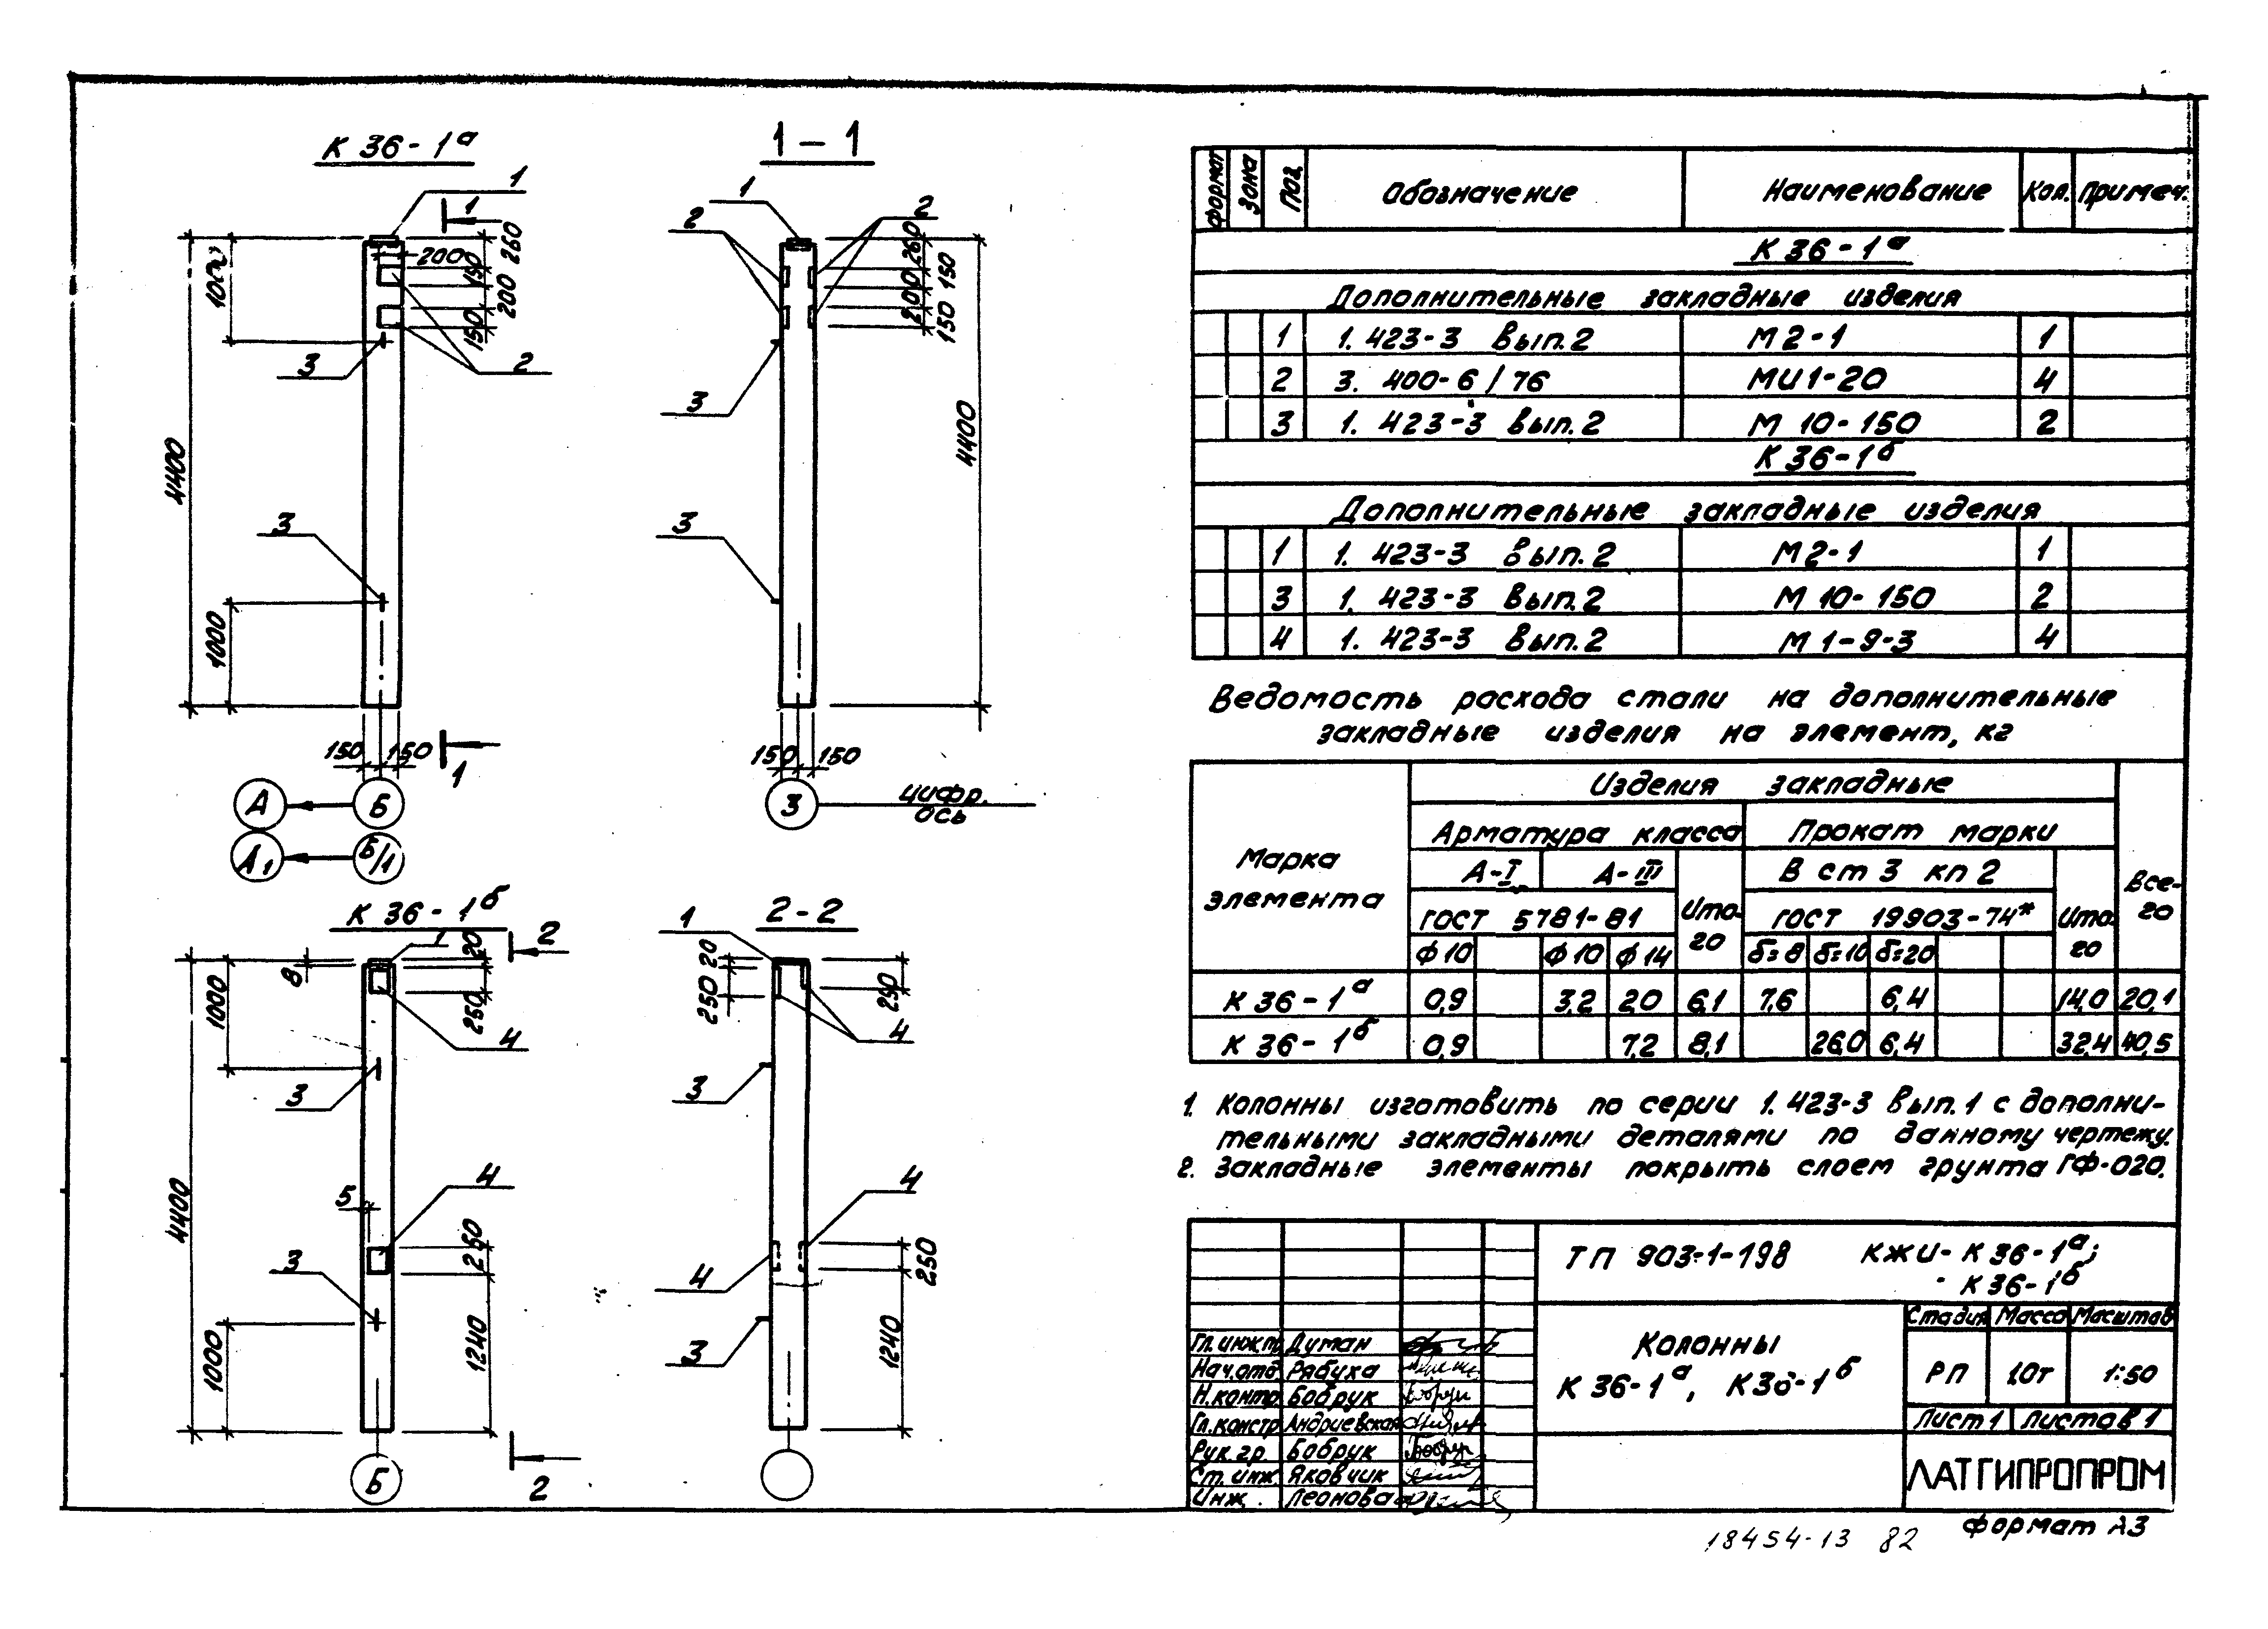 К 36-1ᵃ
1
1
4400
1000
200
260
150
200
150
3
2
3
1000
150 150
1
А Б
А₁ Б/1
1-1
1
2
2
260
150
200
150
3
3
4400
150 150
3
цифр.
ось
К 36-1ᵇ
1
2
20
8
250
1000
4
3
4400
5
4
250
3
1240
1000
Б
2
2-2
1
20
250
250
4
3
4
4
250
3
1240
формат Зона Поз. Обозначение Наименование Кол. Примеч.
К 36-1ᵃ
Дополнительные закладные изделия
1 1. 423-3 Вып. 2 М2-1 1
2 3. 400-6/76 МИ1-20 4
3 1. 423-3 Вып. 2 М 10-150 2
К 36-1ᵇ
Дополнительные закладные изделия
1 1. 423-3 Вып. 2 М2-1 1
3 1. 423-3 Вып. 2 М 10-150 2
4 1. 423-3 Вып. 2 М 1-9-3 4
Ведомость расхода стали на дополнительные
закладные изделия на элемент, кг
Марка элемента
Изделия закладные
Все-го
Арматура класса Прокат марки
А-I А-III Ито-го В ст 3 кп 2 Ито-го
ГОСТ 5781-81 ГОСТ 19903-74*
ф10 ф10 ф14 δ=8 δ=10 δ=20
К 36-1ᵃ 0,9 3,2 2,0 6,1 7,6 6,4 14,0 20,1
К 36-1ᵇ 0,9 7,2 8,1 26,0 6,4 32,4 40,5
1. Колонны изготовить по серии 1. 423-3 Вып. 1 с дополни-
тельными закладными деталями по данному чертежу.
2. Закладные элементы покрыть слоем грунта ГФ-020.
ТП 903-1-198 КЖИ-К 36-1ᵃ;
-К 36-1ᵇ
Колонны
К 36-1ᵃ, К36-1ᵇ
Стадия Масса Масштаб
РП 1.0т 1:50
Лист 1 Листов 1
ЛАТГИПРОПРОМ
Гл. инж.п. Думан
Нач.отд. Рябуха
Н.контр. Бобрук
Гл.констр. Андриевская
Рук. гр. Бобрук
Ст. инж. Яковчик
Инж. Леонова
18454-13 82
формат А3